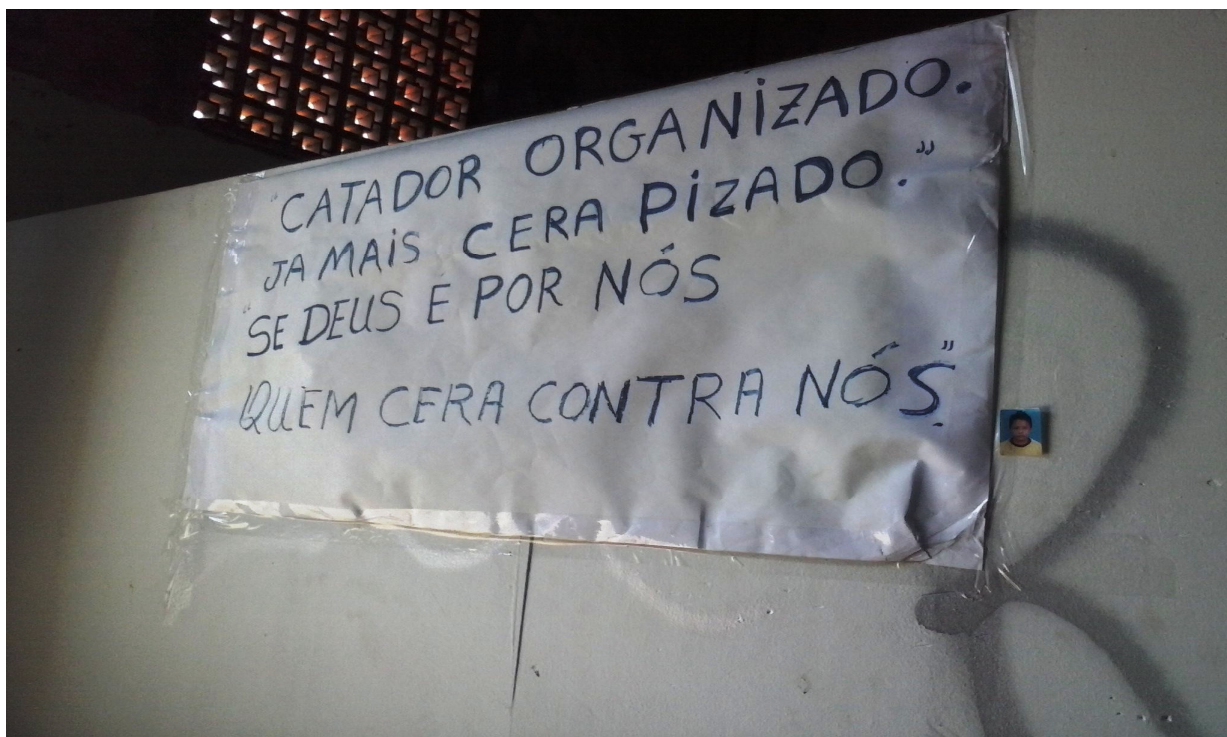 "CATADOR ORGANIZADO.
JAMAIS CERA PIZADO."
"SE DEUS É POR NÓS
QUEM CERA CONTRA NÓS."